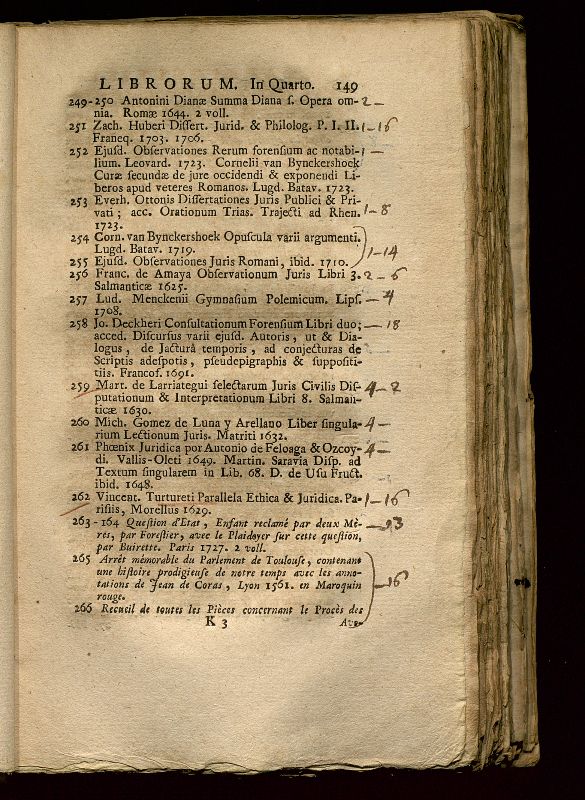 LIBRORUM. In Quarto. 149
249-250 Antonini Dianæ Summa Diana ſ. Opera om- 2 –
nia. Romæ 1644. 2 voll.
251 Zach. Huberi Diſſert. Jurid. & Philolog. P. I. II. 1 – 16
Franeq. 1703. 1706.
252 Ejuſd. Obſervationes Rerum forenſium ac notabi- 1 –
lium. Leovard. 1723. Cornelii van Bynckershoek
Curæ ſecundæ de jure occidendi & exponendi Li-
beros apud veteres Romanos. Lugd. Batav. 1723.
253 Everh. Ottonis Diſſertationes Juris Publici & Pri-
vati; acc. Orationum Trias. Trajecti ad Rhen. 1 – 8
1723.
254 Corn. van Bynckershoek Opuſcula varii argumenti.
Lugd. Batav. 1719. 1 – 14
255 Ejuſd. Obſervationes Juris Romani, ibid. 1710.
256 Franc. de Amaya Obſervationum Juris Libri 3. 2 – 6
Salmanticæ 1625.
257 Lud. Menckenii Gymnaſium Polemicum. Lipſ. – 4
1708.
258 Jo. Deckheri Conſultationum Forenſium Libri duo; – 18
acced. Diſcurſus varii ejuſd. Autoris, ut & Dia-
logus, de Jacturâ temporis, ad conjecturas de
Scriptis adeſpotis, pſeudepigraphis & ſuppoſiti-
tiis. Francof. 1691.
259 Mart. de Larriategui ſelectarum Juris Civilis Diſ- 4 – 2
putationum & Interpretationum Libri 8. Salman-
ticæ 1630.
260 Mich. Gomez de Luna y Arellano Liber ſingula- 4 –
rium Lectionum Juris. Matriti 1632.
261 Phœnix Juridica por Antonio de Feloaga & Ozcoy- 4 –
di. Vallis-Oleti 1649. Martin. Saravia Diſp. ad
Textum ſingularem in Lib. 68. D. de Uſu Fruct.
ibid. 1648.
262 Vincent. Turtureti Parallela Ethica & Juridica. Pa- 1 – 16
riſiis, Morellus 1629.
263-164 Queſtion d'Etat, Enfant reclamé par deux Mè-
res, par Foreſtier, avec le Plaidoyer ſur cette queſtion,
par Buirette. Paris 1727. 2 voll.
265 Arrêt mémorable du Parlement de Toulouſe, contenant
une hiſtoire prodigieuſe de notre temps avec les anno-
tations de Jean de Coras, Lyon 1561. en Maroquin – 16
rouge.
266 Recueil de toutes les Pièces concernant le Procès des
K 3 Ave-